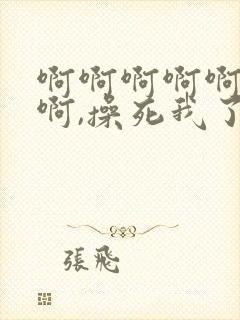 啊啊啊啊啊
啊,操死我了
張飛